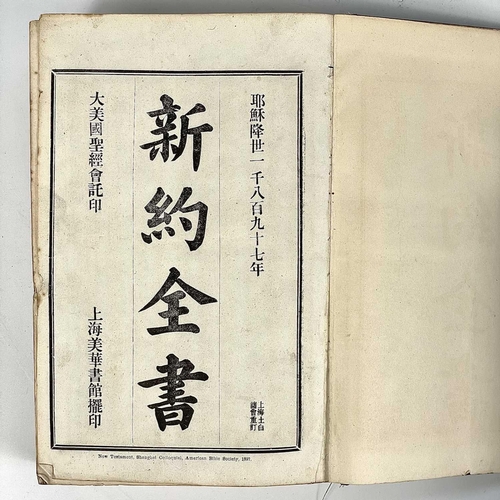 耶穌降世一千八百九十七年
上海土白
諸會重訂
新約全書
大美國聖經會託印
上海美華書館擺印
New Testament, Shanghai Colloquial, American Bible Society, 1897.